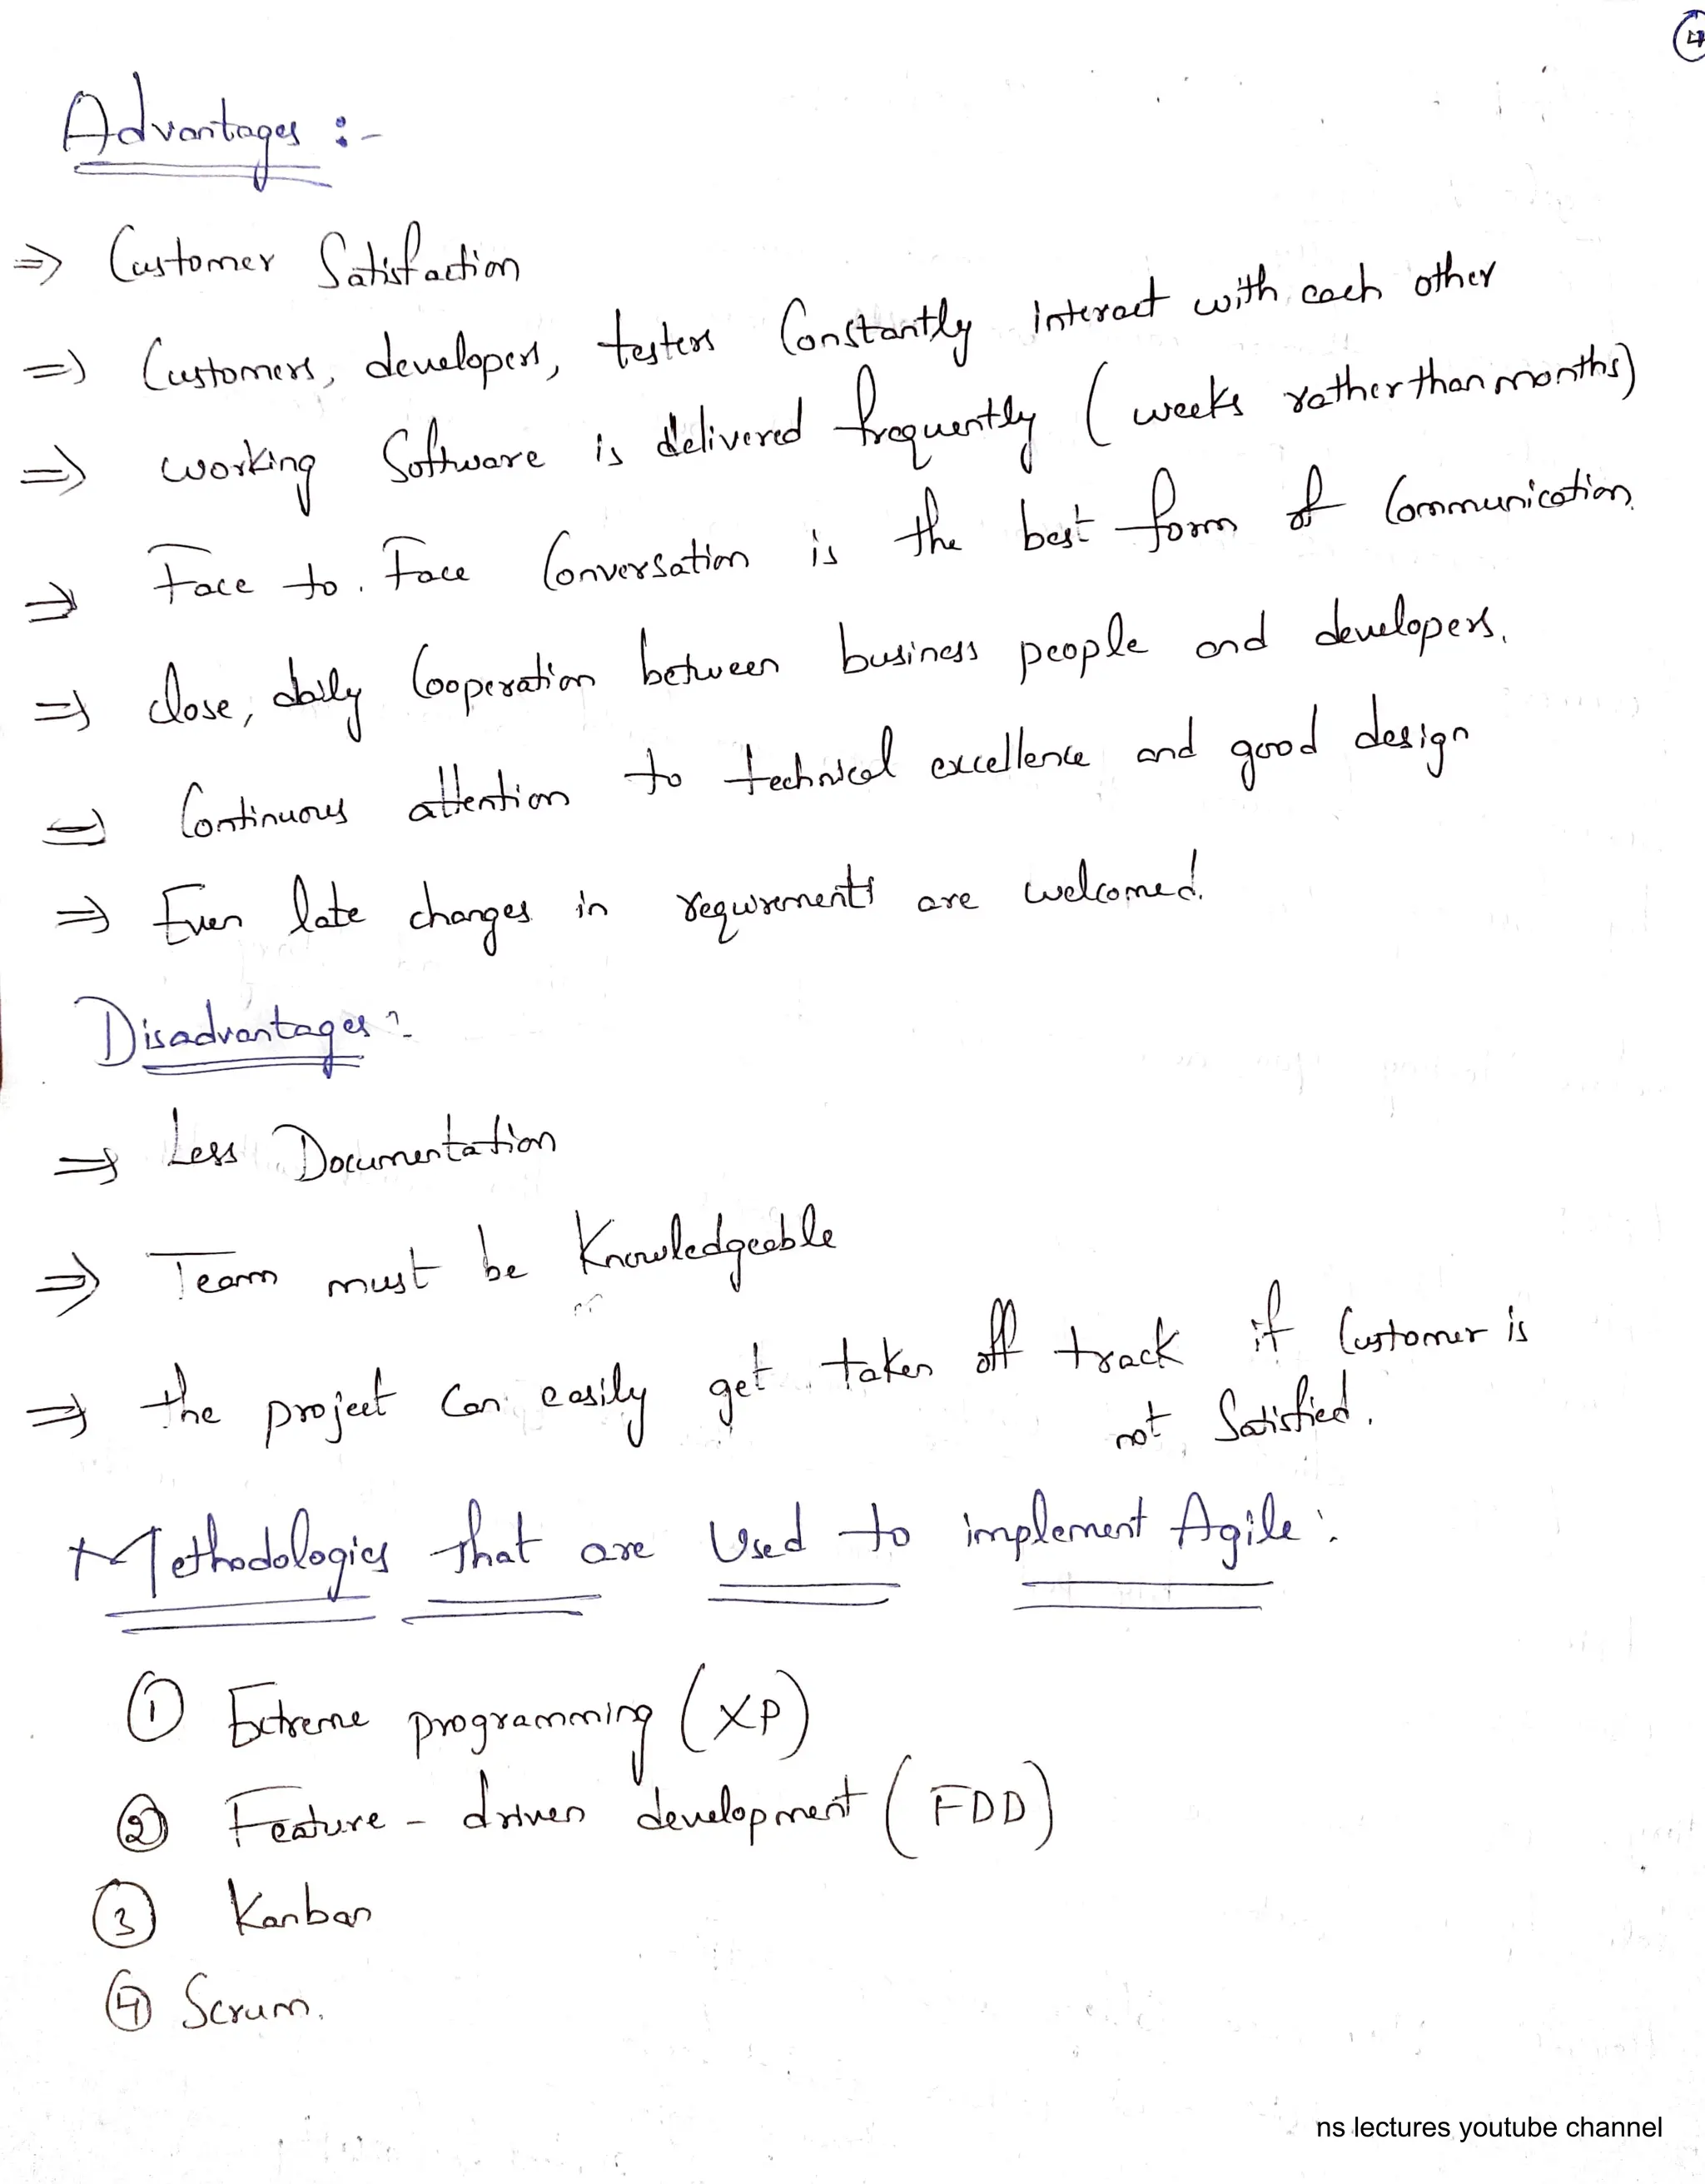 4
Advantages :-
=> Customer Satisfaction
=> Customers, developers, testers Constantly interact with each other
=> working Software is delivered frequently ( weeks rather than months)
=> Face to. Face Conversation is the best form of Communication.
=> close, daily Cooperation between business people and developers.
=> Continuous attention to technical excellence and good design
=> Even late changes in requirements are welcomed.
Disadvantages :-
=> Less Documentation
=> Team must be Knowledgeable
=> the project Can easily get taken off track if Customer is
not Satisfied.
Methodologies that are Used to implement Agile :
① Extreme programming (XP)
② Feature - driven development (FDD)
③ Kanban
④ Scrum.
ns lectures youtube channel